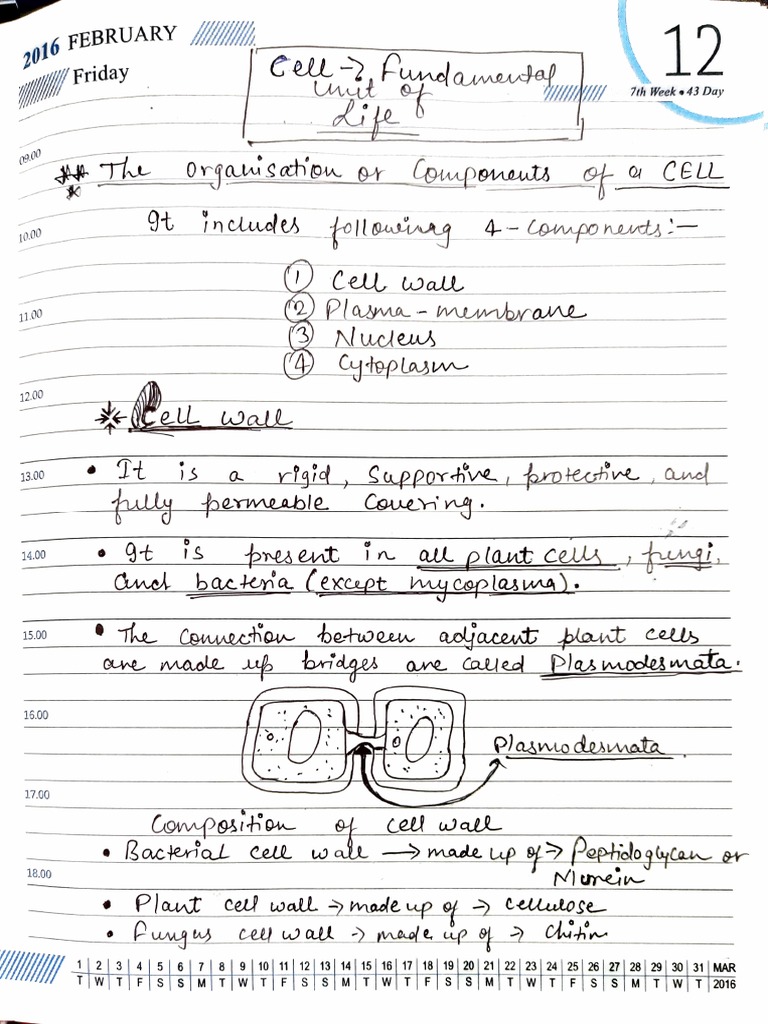 2016 FEBRUARY
Friday
12
7th Week • 43 Day
Cell → Fundamental
unit of
Life
09.00
The Organisation or Components of a CELL
10.00
It includes following 4-Components:-
① Cell wall
11.00
② Plasma-membrane
③ Nucleus
④ Cytoplasm
12.00
Cell wall
13.00
• It is a rigid, supportive, protective, and
fully permeable covering.
14.00
• It is present in all plant cells, fungi,
and bacteria (except mycoplasma).
15.00
• The connection between adjacent plant cells
are made up bridges are called Plasmodesmata.
16.00
Plasmodesmata
17.00
Composition of cell wall
• Bacterial cell wall → made up of → Peptidoglycan or
18.00
Murein
• Plant cell wall → made up of → cellulose
• Fungus cell wall → made up of → Chitin
1 2 3 4 5 6 7 8 9 10 11 12 13 14 15 16 17 18 19 20 21 22 23 24 25 26 27 28 29 30 31 MAR
T W T F S S M T W T F S S M T W T F S S M T W T F S S M T W T 2016